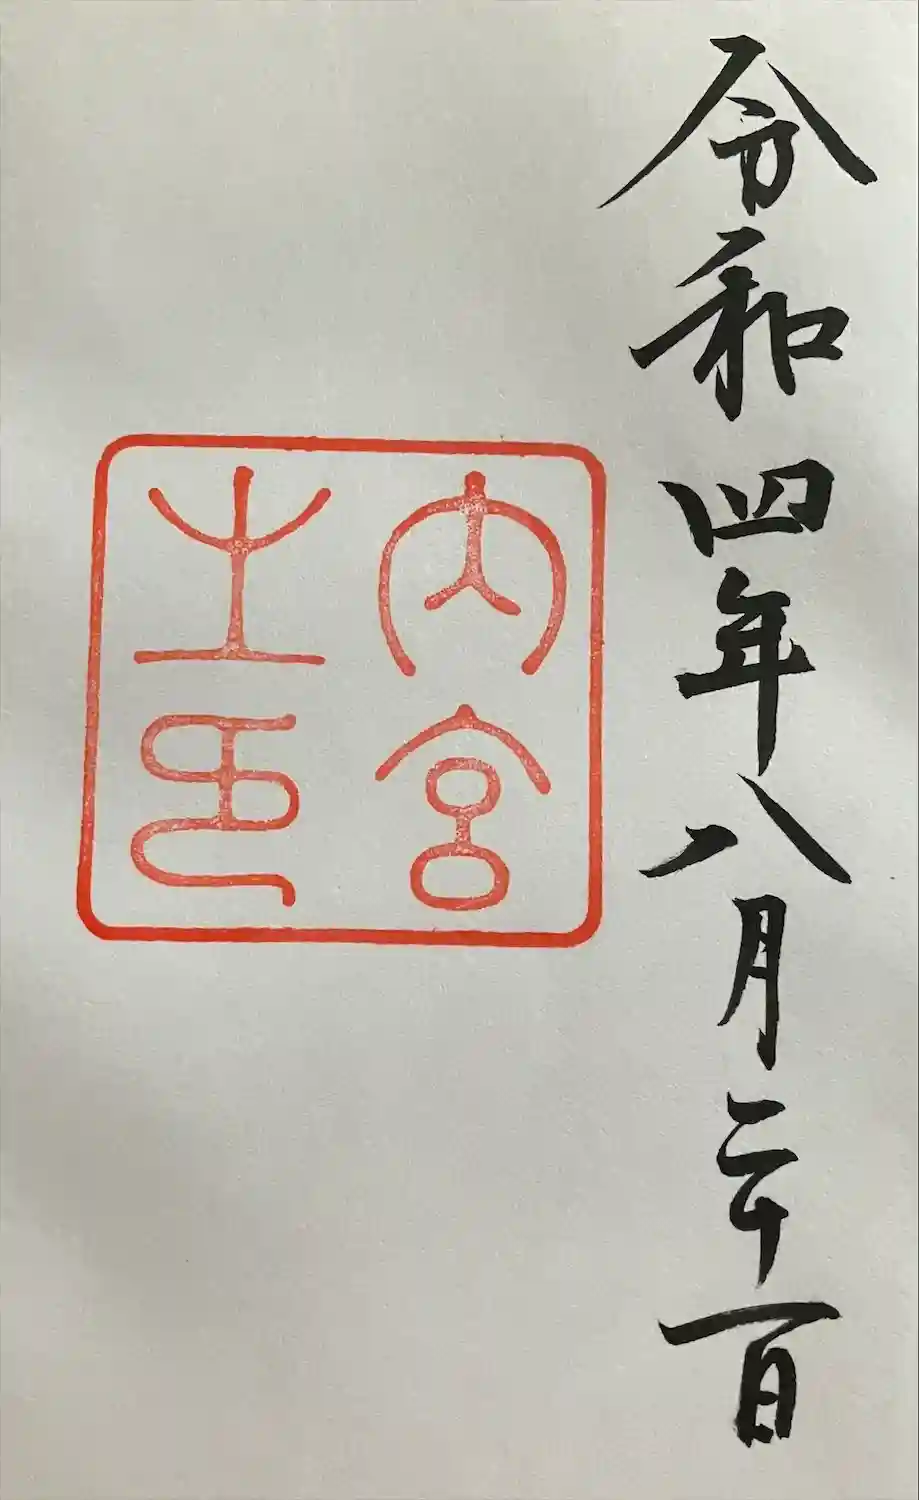 令和四年八月二十一日
内宮
之印